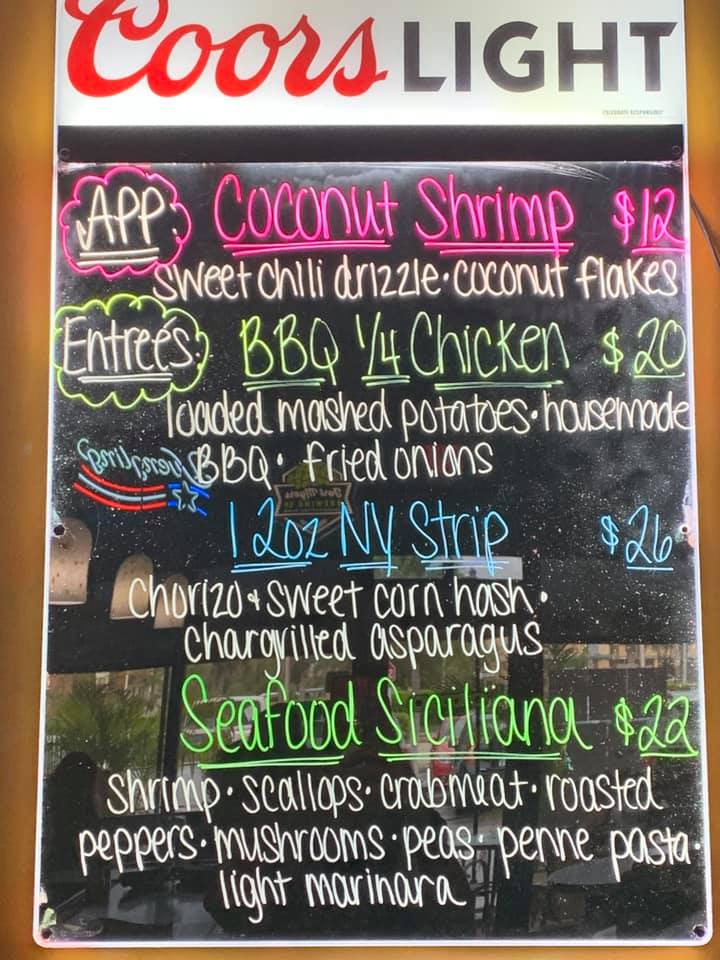 Coors LIGHT
CELEBRATE RESPONSIBLY
APP: Coconut Shrimp $12
sweet chili drizzle • coconut flakes
Entreés: BBQ 1/4 Chicken $20
loaded mashed potatoes • housemade
BBQ • fried onions
Yuengling
Fort Myers
BREWING CO
12oz NY Strip $26
Chorizo & sweet corn hash •
chargrilled asparagus
Seafood Siciliana $22
shrimp • scallops • crabmeat • roasted
peppers • mushrooms • peas • penne pasta •
light marinara